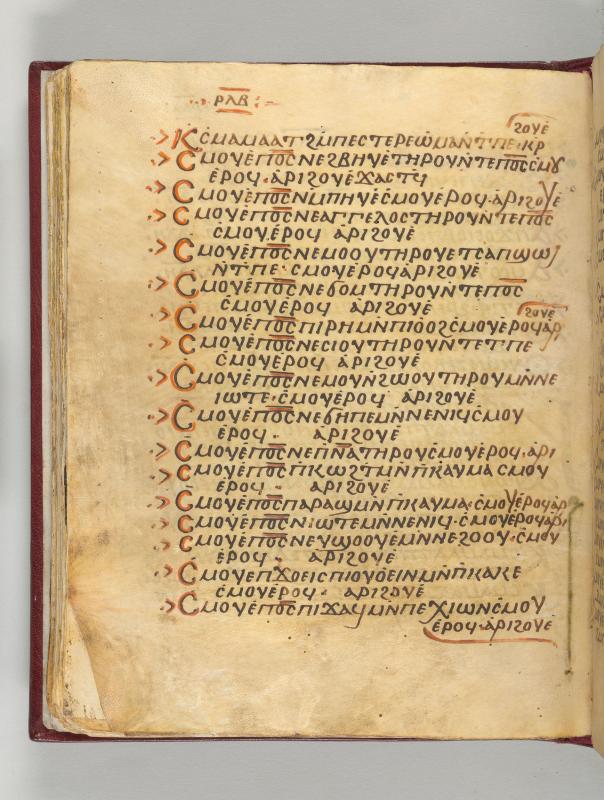 ⲣⲗⲃ
ϩⲟⲩⲉ
ⲕⲥⲙⲁⲙⲁⲁⲧ ϩⲙⲡⲉⲥⲧⲉⲣⲉⲱⲙⲁⲛⲧⲡⲉ·ⲕⲣ
ⲥⲙⲟⲩⲉⲡⲟ̅ⲥ̅ⲛⲉϩⲃⲏⲩⲉⲧⲏⲣⲟⲩⲛⲧⲉⲡⲟ̅ⲥ̅ⲥⲙⲟⲩ
ⲉⲣⲟϥ·ⲁⲣⲓϩⲟⲩⲉϫⲁⲥⲧϥ
ⲥⲙⲟⲩⲉⲡⲟ̅ⲥ̅ⲛⲙⲡⲏⲩⲉⲥⲙⲟⲩⲉⲣⲟϥ·ⲁⲣⲓϩⲟⲩⲉ
ⲥⲙⲟⲩⲉⲡⲟ̅ⲥ̅ⲛⲉⲁⲅⲅⲉⲗⲟⲥⲧⲏⲣⲟⲩⲛⲧⲉⲡⲟ̅ⲥ̅
ⲥⲙⲟⲩⲉⲣⲟϥ ⲁⲣⲓϩⲟⲩⲉ
ⲥⲙⲟⲩⲉⲡⲟ̅ⲥ̅ⲛⲉⲙⲟⲟⲩⲧⲏⲣⲟⲩⲉⲧⲥⲁⲡϣⲱⲓ
ⲛⲧⲡⲉ·ⲥⲙⲟⲩⲉⲣⲟϥⲁⲣⲓϩⲟⲩⲉ
ⲥⲙⲟⲩⲉⲡⲟ̅ⲥ̅ⲛⲉϭⲟⲙⲧⲏⲣⲟⲩⲛⲧⲉⲡⲟ̅ⲥ̅
ⲥⲙⲟⲩⲉⲣⲟϥ ⲁⲣⲓϩⲟⲩⲉ
ϩⲟⲩⲉ
ⲥⲙⲟⲩⲉⲡⲟ̅ⲥ̅ⲡⲓⲣⲏⲙⲛⲡⲓⲟⲟϩⲥⲙⲟⲩⲉⲣⲟϥⲁⲣ
ⲥⲙⲟⲩⲉⲡⲟ̅ⲥ̅ⲛⲉⲥⲓⲟⲩⲧⲏⲣⲟⲩⲛⲧⲉⲧⲡⲉ
ⲥⲙⲟⲩⲉⲣⲟϥ ⲁⲣⲓϩⲟⲩⲉ
ⲥⲙⲟⲩⲉⲡⲟ̅ⲥ̅ⲛⲉⲙⲟⲩⲛϩⲱⲟⲩⲧⲏⲣⲟⲩⲙⲛⲛⲉ
ⲓⲱⲧⲉ·ⲥⲙⲟⲩⲉⲣⲟϥ ⲁⲣⲓϩⲟⲩⲉ
ⲥⲙⲟⲩⲉⲡⲟ̅ⲥ̅ⲛⲉϭⲏⲡⲉⲙⲛⲛⲉⲛⲓϥⲥⲙⲟⲩ
ⲉⲣⲟϥ· ⲁⲣⲓϩⲟⲩⲉ
ⲥⲙⲟⲩⲉⲡⲟ̅ⲥ̅ⲛⲉⲡⲛ̅ⲁ̅ⲧⲏⲣⲟⲩⲥⲙⲟⲩⲉⲣⲟϥ·ⲁⲣⲓ
ⲥⲙⲟⲩⲉⲡⲟ̅ⲥ̅ⲡⲕⲱϩⲧⲙⲛⲡⲕⲁⲩⲙⲁⲥⲙⲟⲩ
ⲉⲣⲟϥ· ⲁⲣⲓϩⲟⲩⲉ
ⲥⲙⲟⲩⲉⲡⲟ̅ⲥ̅ⲡⲁⲣⲁϣⲙⲛⲡⲕⲁⲩⲙⲁ·ⲥⲙⲟⲩⲉⲣⲟϥⲁⲣ
ⲥⲙⲟⲩⲉⲡⲟ̅ⲥ̅ⲛⲓⲱⲧⲉⲙⲛⲛⲉⲛⲓϥ·ⲥⲙⲟⲩⲉⲣⲟϥⲁⲣⲓ
ⲥⲙⲟⲩⲉⲡⲟ̅ⲥ̅ⲛⲉⲩϣⲟⲟⲩⲉⲙⲛⲛⲉϩⲟⲟⲩ·ⲥⲙⲟⲩ
ⲉⲣⲟϥ· ⲁⲣⲓϩⲟⲩⲉ
ⲥⲙⲟⲩⲉⲡϫⲟⲉⲓⲥⲡⲓⲟⲩⲟⲉⲓⲛⲙⲛⲡⲕⲁⲕⲉ
ⲥⲙⲟⲩⲉⲣⲟϥ· ⲁⲣⲓϩⲟⲩⲉ
ⲥⲙⲟⲩⲉⲡⲟ̅ⲥ̅ⲡⲓϫⲁϥⲙⲛⲡⲉⲭⲓⲱⲛⲥⲙⲟⲩ
ⲉⲣⲟϥ·ⲁⲣⲓϩⲟⲩⲉ